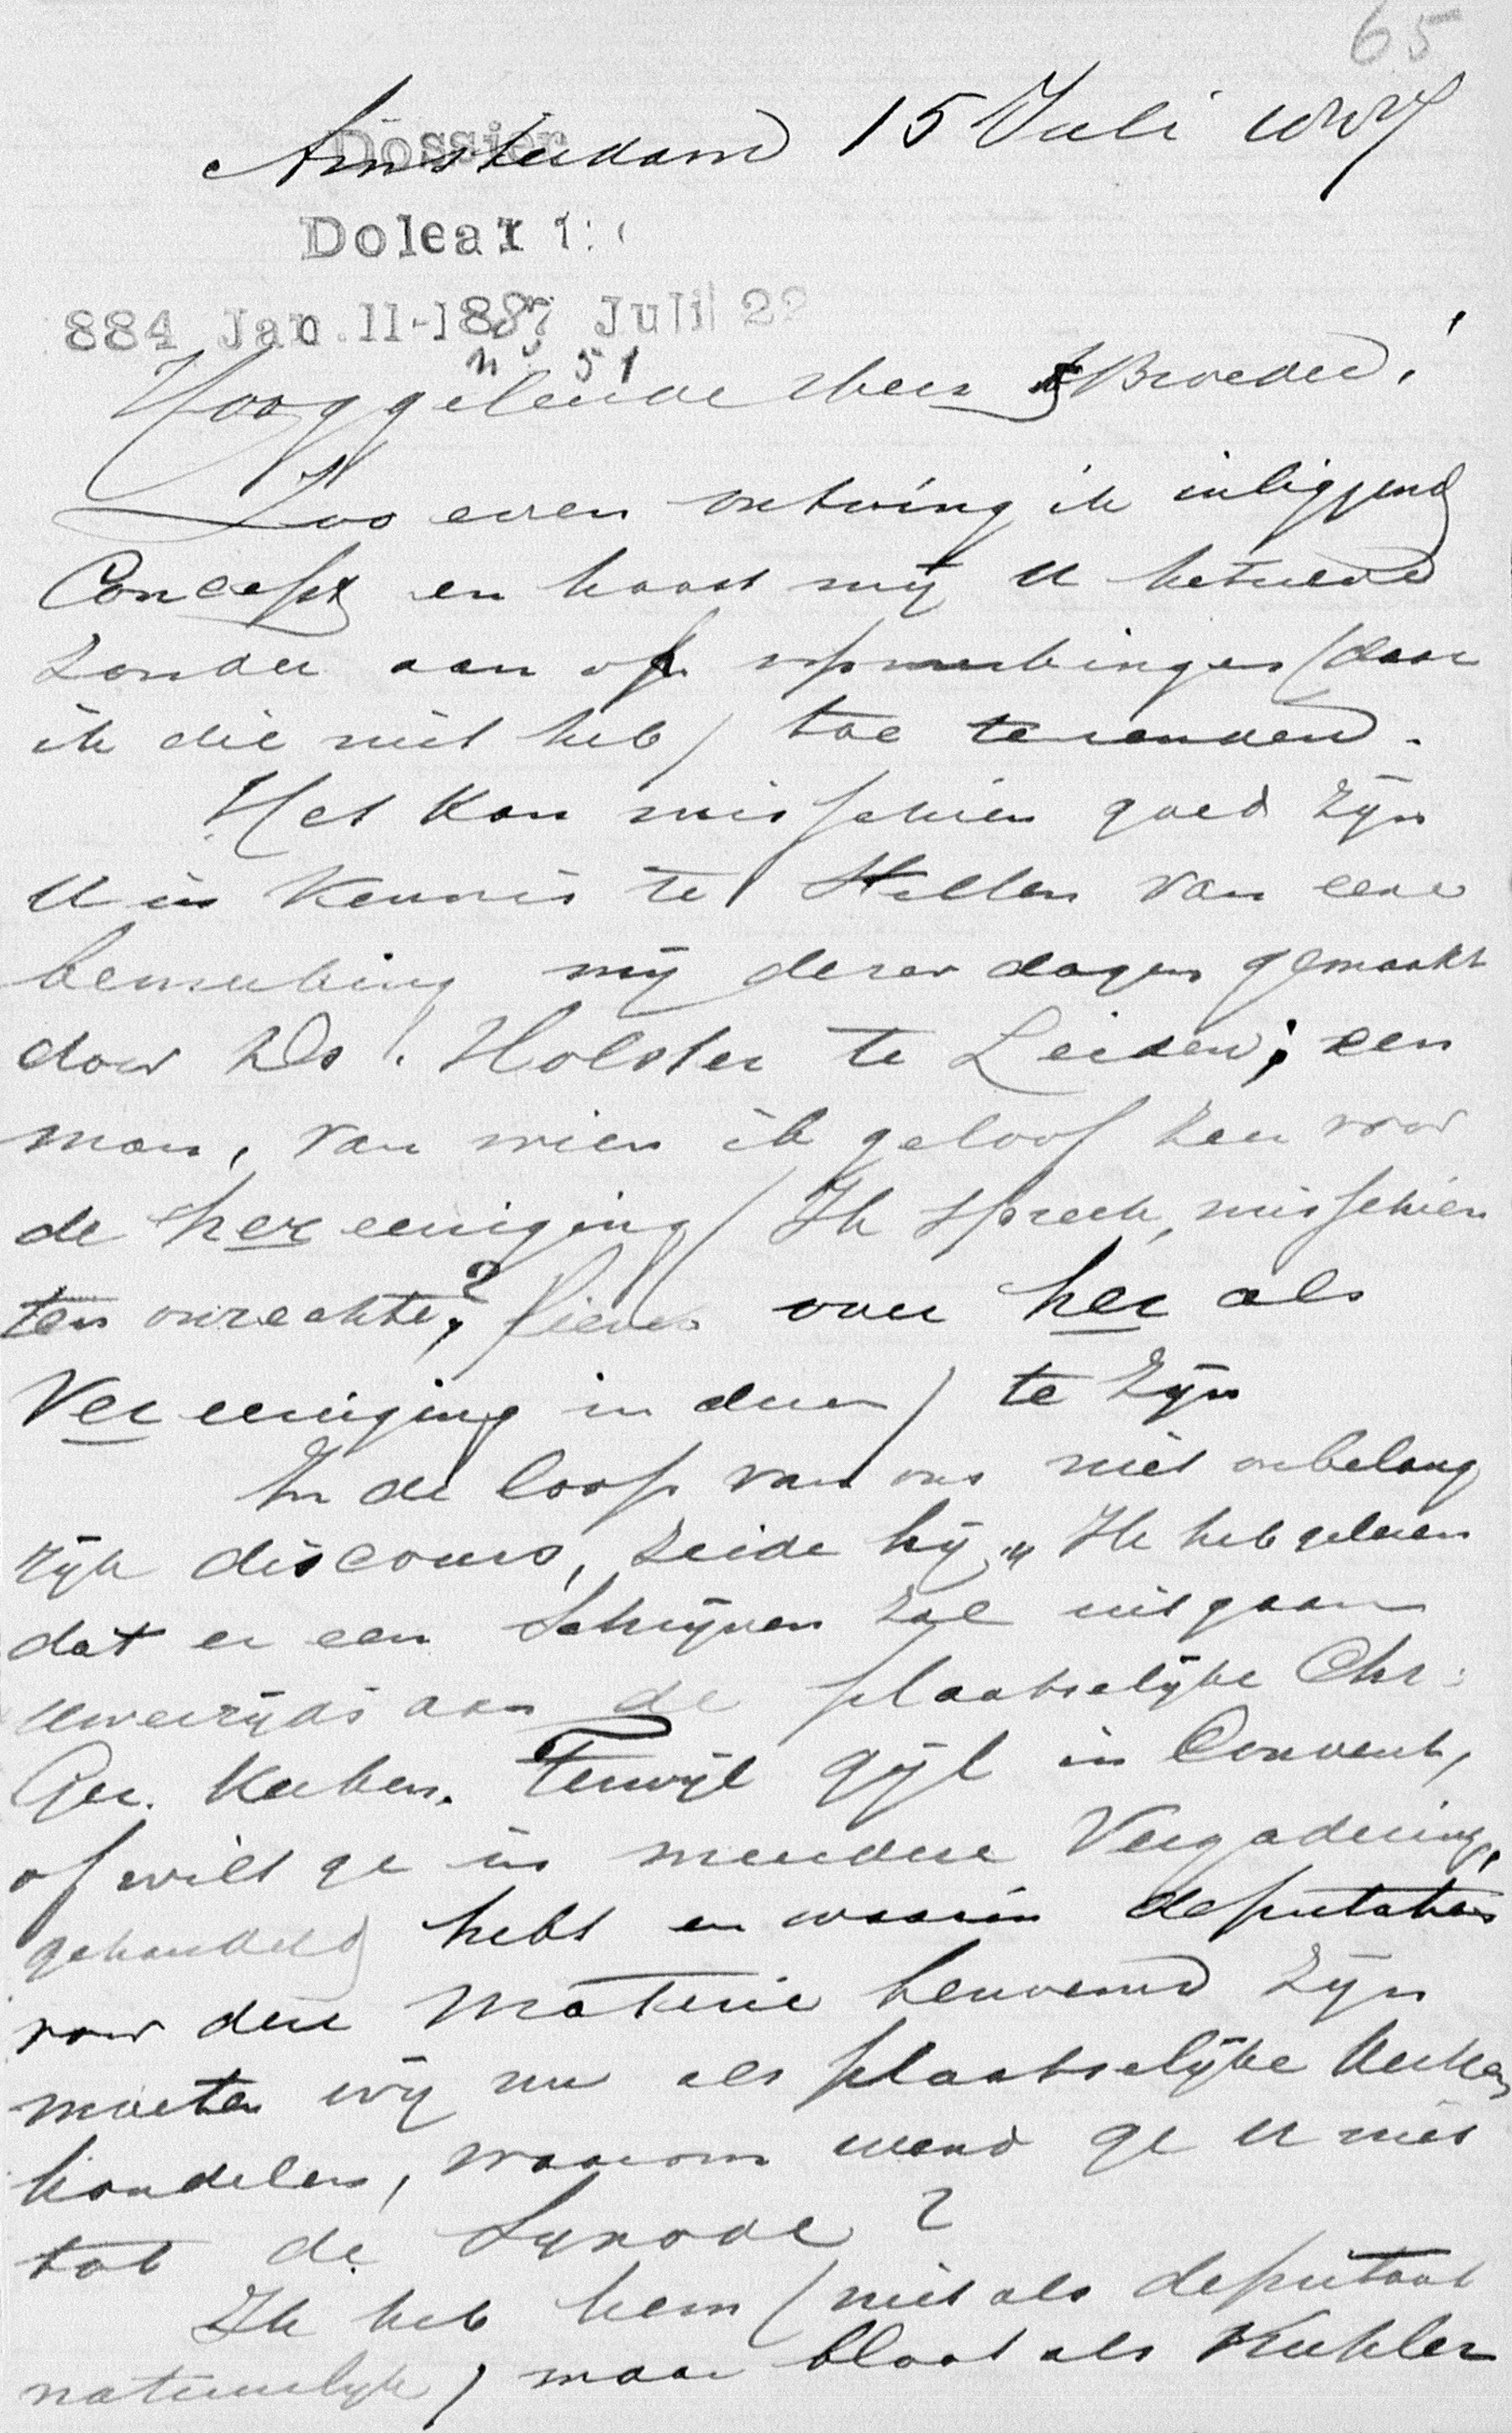 65
Amsterdam 15 Juli 1887
Dossier
Doleantie
884 Jan. 11-1887 Juli 22
n. 51
Hooggeleerde Heer & Broeder!
Zoo even ontving ik inliggend
Concept en haast mij U hetzelve
zonder aan of opmerkingen (daar
ik die niet heb) toe te zenden.
Het kan misschien goed zijn
U in kennis te stellen van eene
bemerking mij dezer dagen gemaakt
door Ds. Holster te Leiden; een
man, van wien ik geloof zeer voor
de hereeniging (Ik spreek, misschien
ten onrechte,? liever over her als
Vereeniging in dezen) te zijn
In de loop van ons niet onbelang
rijk discours, zeide hij "Ik heb gelezen
dat er een Schrijven zal uitgaan
uwerzijds aan de plaatselijke Chr:
Ger. Kerken. Terwijl gijl in Convent,
of wilt ge in meerdere Vergadering,
gehandeld hebt en waarin deputaten
voor deze Materie benoemd zijn
moeten wij nu als plaatselijke Kerken
handelen, waarom wend ge U niet
tot de Synode?
Ik heb hem (niet als deputaat
natuurlijk) maar bloot als Kuhler